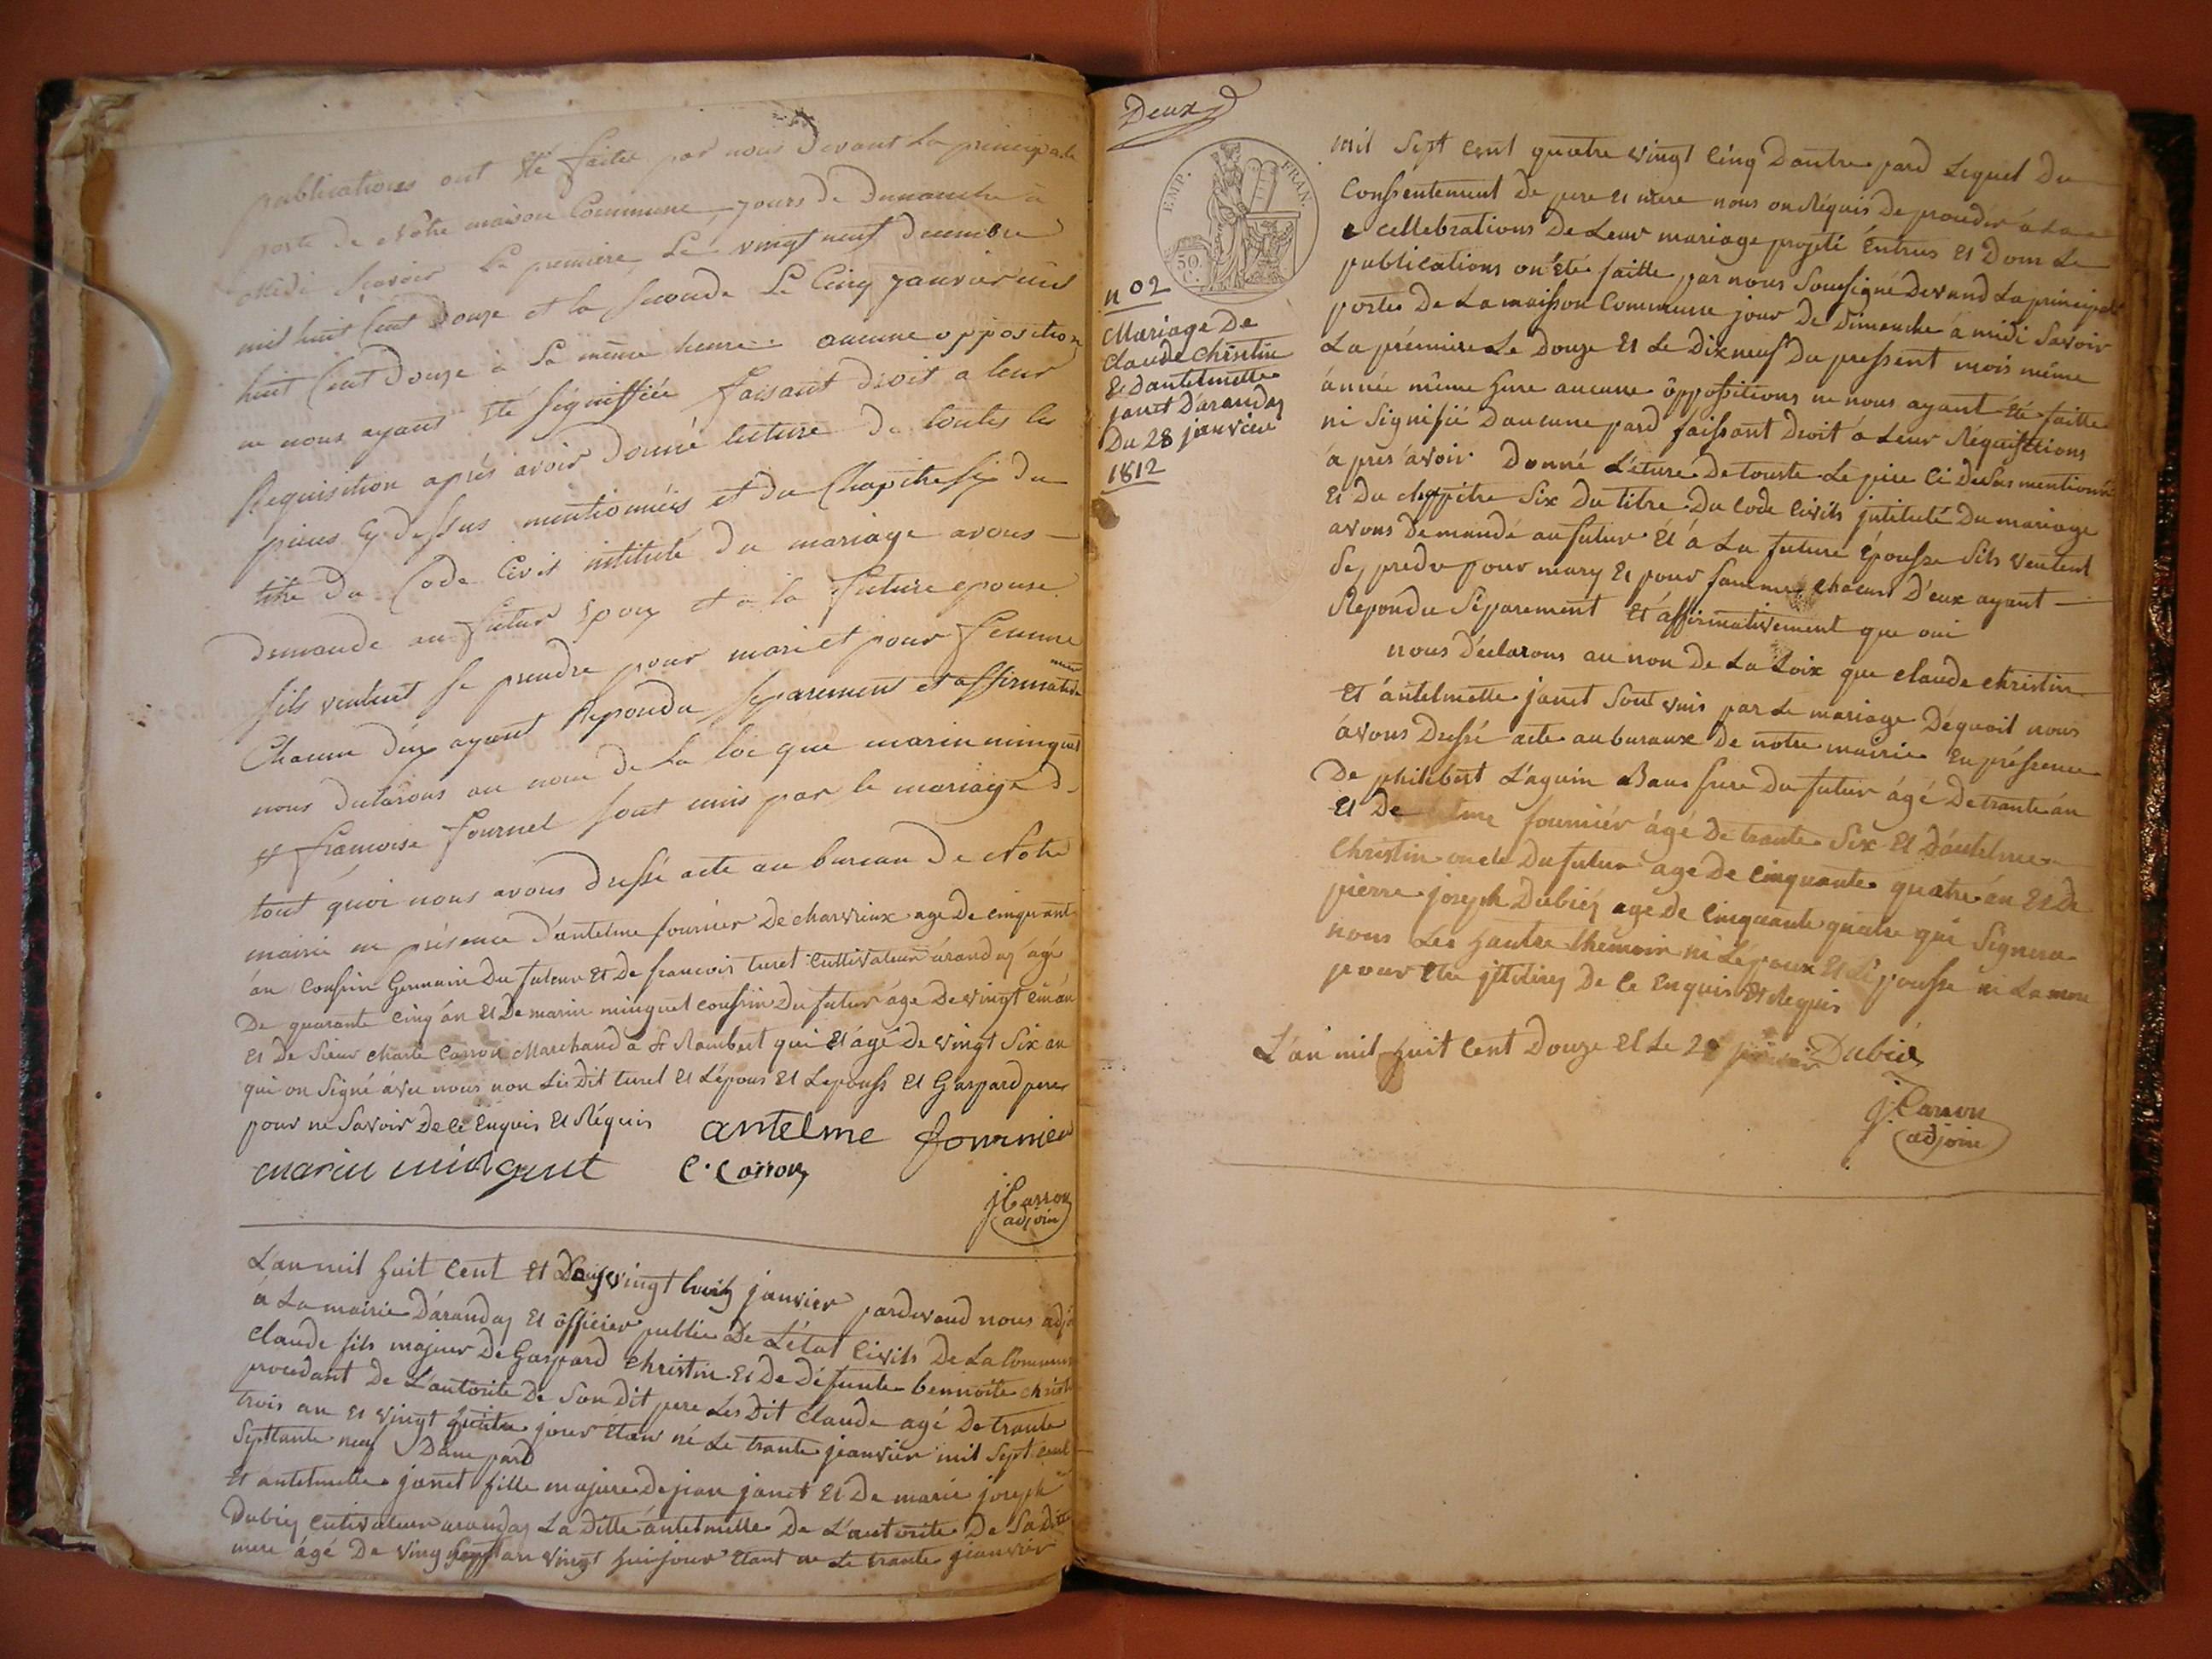 publications ont été faites par nous devant la principale
porte de Notre maison Commune jours de dimanche à
midi scavoir la premiere le vingt neuf decembre
mil huit Cent douze et la seconde Le Cinq janvier mil
huit Cent douze à la même heure aucune opposition
ne nous ayant été signiffiée faisant droit a leur
Requisition aprés avoir donné lecture de toutes les
pieces cy dessus mentionnées et du Chapitre six du
titre du Code Civil intitulé du mariage avons
demande au futur epoux et a la future epouse
sils veulent se prendre pour mari et pour femme
Chacun deux ayant Repondu separement et affirmative
ment
nous declarons au nom de la loi que marin minguet
et francoise fournel sont unis par le mariage de
tout quoi nous avons dressé acte au bureau de Notre
mairie en présence d'antelme fournier De charvieux age De cinquant
án Coussin Germain Du futeur Et De francois turel Cultivateur árandas ágé
De quarante Cinq án Et De marin minguet coussin Du futur áge De vingt
Et De sieur charle Carron Marchand à St Rambert qui Et ágé De vingt Six an
qui on Signé ávec nous non Lis Dit turel Et Lépous Et Lepouss Et Gaspard pere
pour ne Savoir De Ce Enquis Et Réquis antelme fournier
marin minguet C. Carron
j Carron
adjoin
L'an mil huit Cent Et Douze vingt huit janvier pardevand nous adjoi
á La mairie D'arandas Et officier public De L'état Civils De La Commune
Claude fils majeur De Gaspard Christin Et De Défunte bennoite christ
procedant De L'autorite De Son Dit pere Les Dit Claude agé De trante
trois an Et vingt jour étan né Le trante jeanvier mil Sept Cent
Septtante neuf Dune pard
Et antelmette janet fille majure De jean janet Et De marie joseph
Dubiez cultivateur arandas La Ditte ántelmette De L'autorite De Sa Ditte
mere ágé De ving an vingt hui jour étant ne Le trante jeanvier
Deux
EMP. FRAN.
50 C.
n° 2
Mariage De
Claude Christin
Et D'antelmette
janet D'arandas
Du 28 janvier
1812
mil Sept Cent quatre vingt Cinq Dautre pard Lequel Du
Conssentement De pere Et mere nous on Réquis De proceder á La
cellebrations De Leur mariage projeté Entrus Et Dom Le
publications on été faitte par nous Soussigné Devand La principale
portes De La maisson Commune jour De Dimenche á midi Savoir
La prémiere Le Douze Et Le Dix neuf Du pressent mois même
ánnée même hure aucune ôppositions ne nous ayant été faitte
ni Signifié Daucune pard faissant Droit á Leur Réquissitions
á pres ávoir Donné L'éture De touste Le piece Ci Desus mentionné
Et Du chappitre Six Du titre Du Code Civils jntitulé Du mariage
avons Demandé au futur Et á La future Epousse Sils veulent
Se predre pour mary Et pour famme chacun D'eux ayant
Repondu Séparement Et áffirmativement que oui
nous Déclarons au non De La Loix que Claude Christin
Et ántelmette janet Sont unis par Le mariage Dequoit nous
ávons Dressé acte au buraux De notre mairie En préssence
De philibert L'aguin Baus frere Du futur ágé De trante án
Et De fournier ágé De trante Six Et D'ántelme
Christin oncle Du futur age De Cinquante quatre án Et De
pierre joseph Dubiez age De Cinquante quatre qui Signera
nous Les hautre thémoin ni Lépoux Et Lépousse ni La mere
pour De Ce Enquis Et Requis
L'an mil huit Cent Douze Et Le 28 janvier Dubiez
j. Carron
adjoin